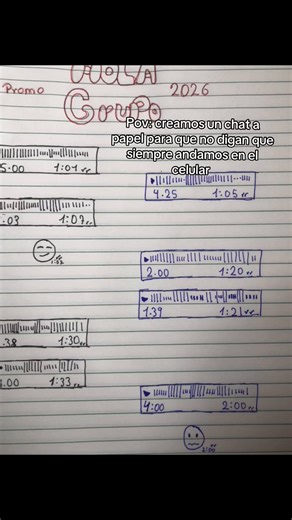 HOLA
Promo 2026
Grupo
Pov: creamos un chat a
papel para que no digan que
siempre andamos en el
celular
5:00 1:01
4.25 1:05
.03 1:07
1:12
2.00 1:20
1.39 1:21
.38 1:30
.00 1:33
4:00 2:00
2:00